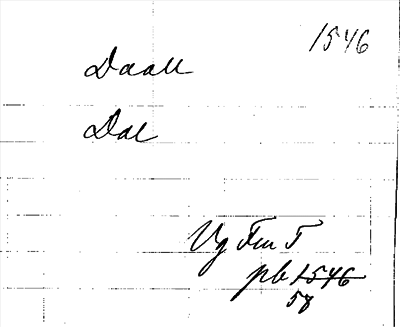 1546
Daall
Dal
Vg Fen T
pb 1546
58